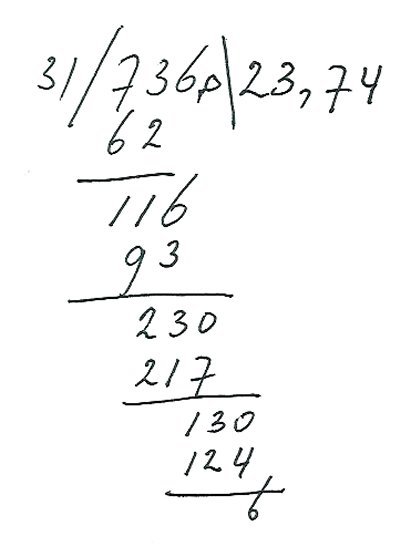 31/736,0\23,74
62
116
93
230
217
130
124
6